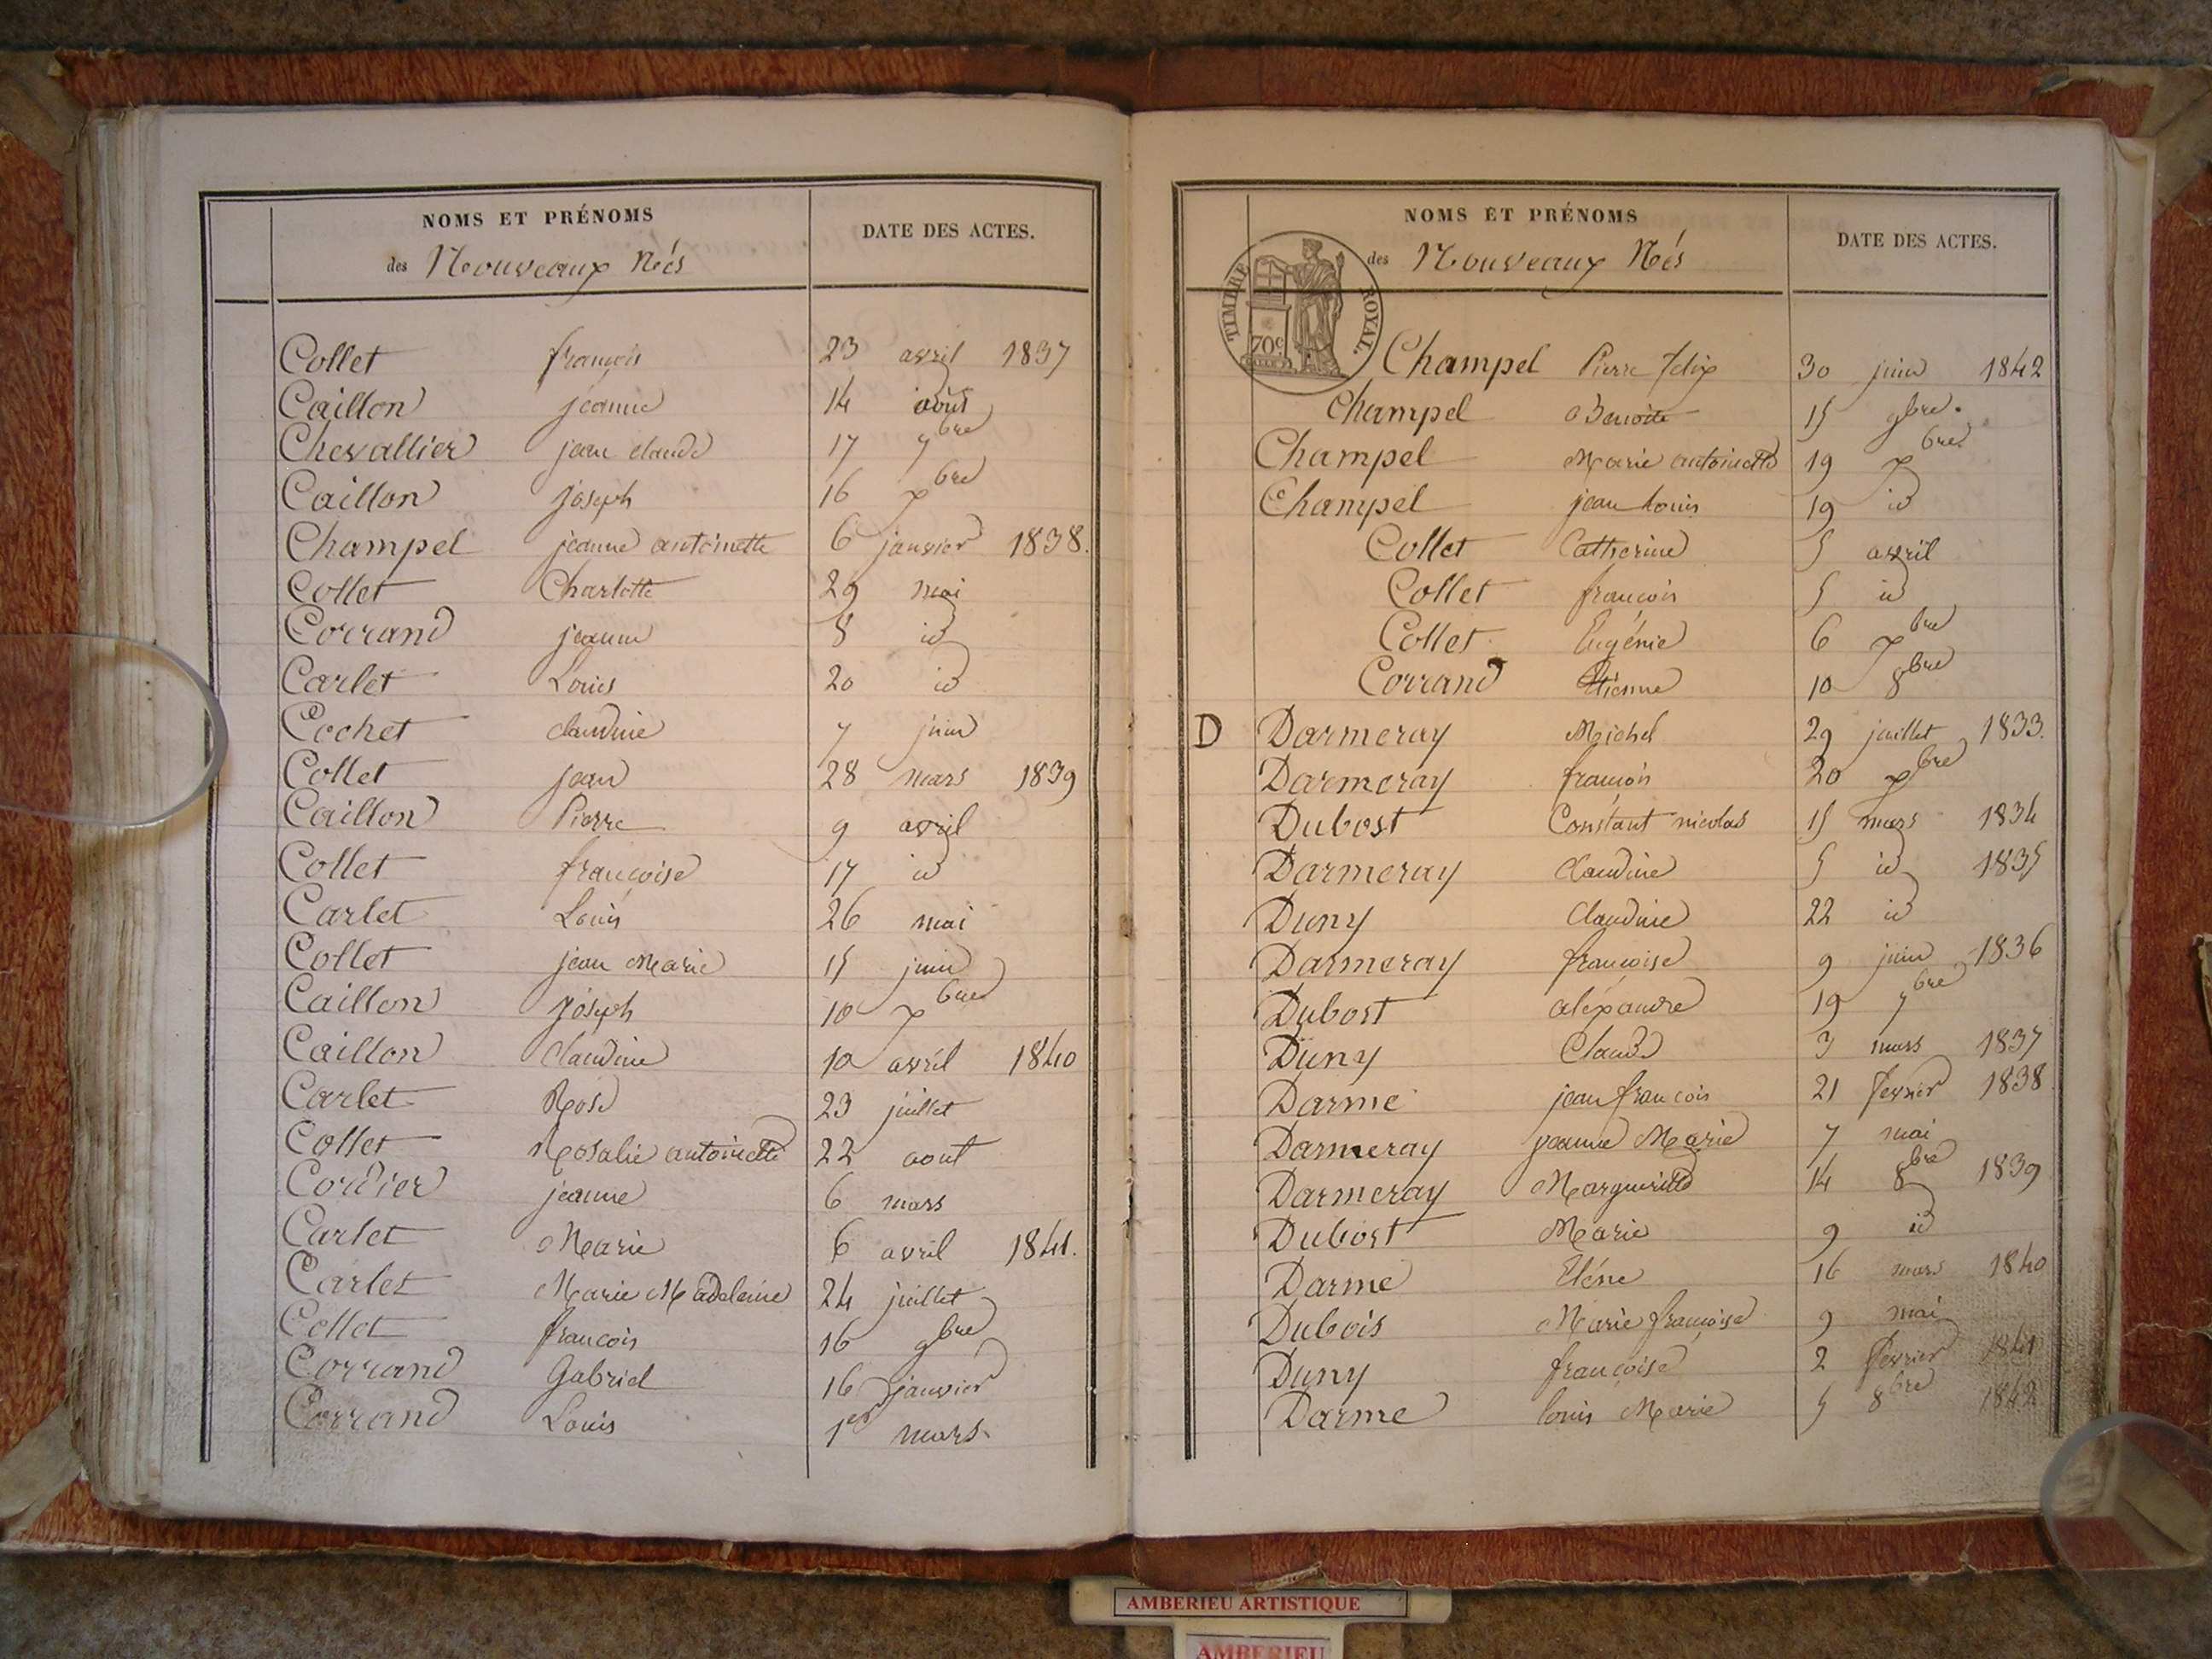 NOMS ET PRÉNOMS
des Nouveaux Nés
DATE DES ACTES.
Collet françois 23 avril 1837
Caillon jeanne 14 août
Chevallier jean claude 17 7bre
Caillon joseph 16 Xbre
Champel jeanne antoinette 6 janvier 1838.
Collet Charlotte 29 mai
Corrand jeanne 8 id
Carlet Louis 20 id
Cochet claudine 7 juin
Collet jean 28 mars 1839
Caillon Pierre 9 avril
Collet françoise 17 id
Carlet Louis 26 mai
Collet jean Marie 15 juin
Caillon joseph 10 Xbre
Caillon Claudine 10 avril 1840
Carlet Rose 23 juillet
Collet Rosalie antoinette 22 aout
Cordier jeanne 6 mars
Carlet Marie 6 avril 1841.
Carlet Marie Madeleine 24 juillet
Collet francois 16 9bre
Corrand Gabriel 16 janvier
Corrand Louis 1er mars
NOMS ET PRÉNOMS
des Nouveaux Nés
DATE DES ACTES.
TIMBRE ROYAL.
70c
Champel Pierre felix 30 juin 1842
Champel Benoite 15 9bre.
Champel Marie antoinette 19 Xbre
Champel jean Louis 19 id
Collet Catherine 5 avril
Collet françois 5 id
Collet Eugénie 6 Xbre
Corrand Etienne 10 8bre
D Darmeray Michel 29 juillet 1833.
Darmeray françois 20 Xbre
Dubost Constant nicolas 15 mars 1834
Darmeray Claudine 5 id 1835
Duny Claudine 22 id
Darmeray françoise 9 juin 1836
Dubost alexandre 19 7bre
Duny Claude 3 mars 1837
Darme jean françois 21 fevrier 1838
Darmeray jeanne Marie 7 mai
Darmeray Marguerite 14 8bre 1839
Dubost Marie 9 id
Darme Eléne 16 mars 1840
Dubois Marie françoise 9 mai
Duny françoise 2 fevrier 1841
Darme louis Marie 5 8bre 1842
AMBERIEU ARTISTIQUE
AMBERIEU